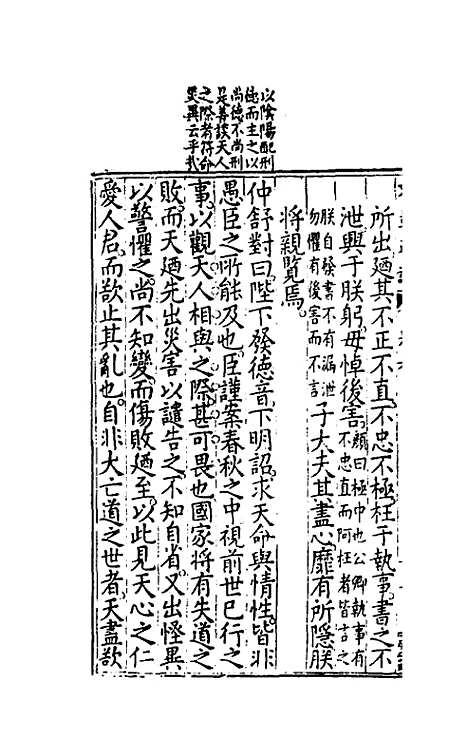 以陰陽配刑
德而主之以
尚德不尚刑
是善談天人
之際者符命
災異云乎哉
所出廼其不正不直不忠不極枉于執事書之不
泄興于朕躬毋悼後害顏曰極中也公卿執事有
不忠直而阿枉者皆言之
朕自發書不有漏泄
勿懼有後害而不言子大夫其盡心靡有所隱朕
將親覽焉
仲舒對曰陛下發德音下明詔求天命與情性皆非
愚臣之所能及也臣謹案春秋之中視前世已行之
事以觀天人相與之際甚可畏也國家將有失道之
敗而天廼先出災害以譴告之不知自省又出怪異
以警懼之尚不知變而傷敗廼至以此見天心之仁
愛人君而欲止其亂也自非大亡道之世者天盡欲